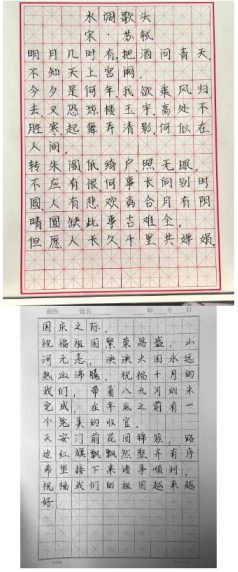 水调歌头
宋·苏轼
明月几时有,把酒问青天,
不知天上宫阙,
今夕是何年我欲乘风归
去又恐琼楼玉宇,高处不
胜寒起舞弄清影,何似在
人间。
转朱阁低绮户照无眠,
不应有恨何事长向别时
圆人有悲欢离合月有阴
晴圆缺此事古难全,
但愿人长久千里共婵娟。
班级 姓名 年 月 日
国庆之际,
祝福祖国繁荣昌盛,山
河无恙,泱泱大国永远
热血沸腾,祝福十月的
我们,带着八九月的未
完成,在年底之前有一
个完美的收官。
天安门前花团锦簇,路
边红旗飘飘然整齐有序
希望接下来诸事顺利,
祝福我们的祖国越来越
好